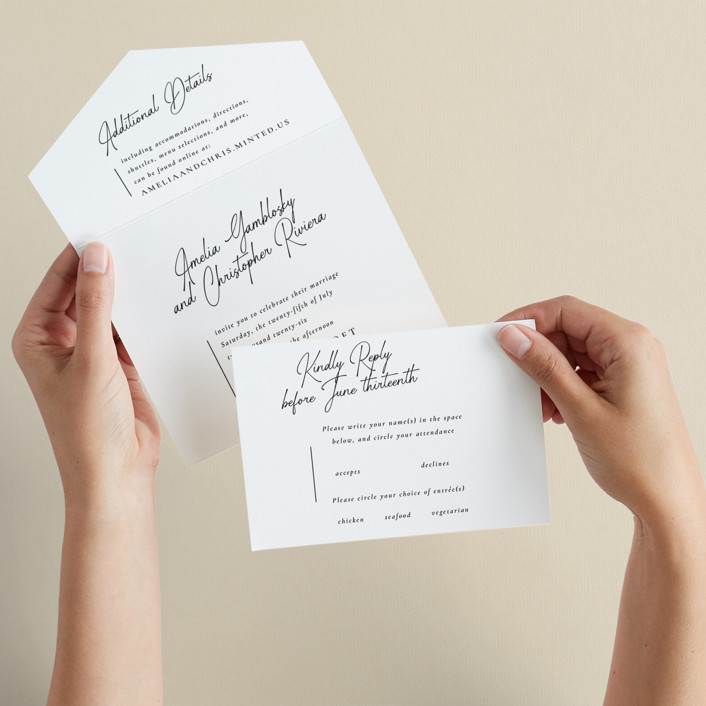 Additional Details
including accommodations, directions,
shuttles, menu selections, and more,
can be found online at:
AMELIAANDCHRIS.MINTED.US
Amelia Yamblosky
and Christopher Riviera
invite you to celebrate their marriage
Saturday, the twenty-fifth of July
and twenty-six
the afternoon
Kindly Reply
before June thirteenth
Please write your name(s) in the space
below, and circle your attendance
accepts declines
Please circle your choice of entrée(s)
chicken seafood vegetarian